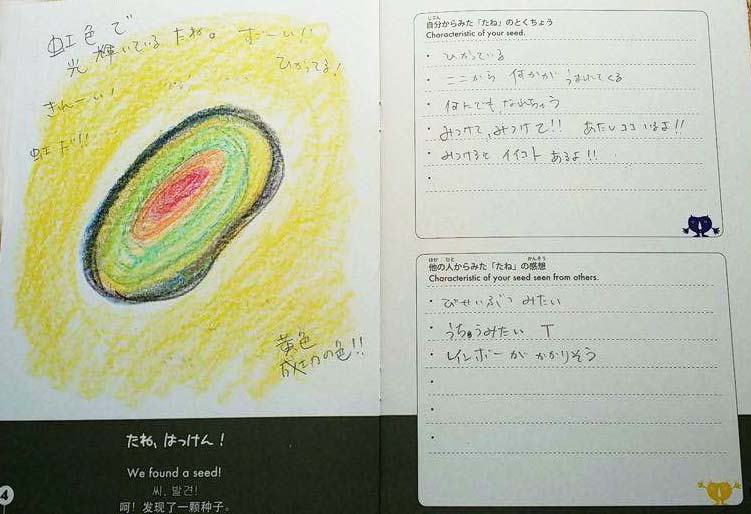 虹色で
光 輝いている たね。 ゴーい!!
ひかってる!
きれーい!
虹だ!!
黄色
成功の色!!
たね、はっけん!
We found a seed!
씨, 발견!
呵！发现了一颗种子。
4
じぶん
自分からみた「たね」のとくちょう
Characteristic of your seed.
・ ひかっている
・ ここから 何かが うまれてくる
・ なんでも、なれちゃう
・ みつけて、みつけて!! あたしココいるよ!!
・ みつけると イイコト あるよ!!
・
ほか ひと かんそう
他の人からみた「たね」の感想
Characteristic of your seed seen from others.
・ びせいぶつ みたい
・ うちゅうみたい T
・ レインボーが かかりそう
・
・
・